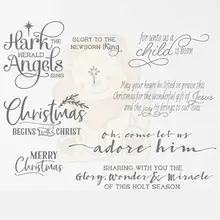 Hark
THE
HERALD
Angels
SING
GLORY TO THE
NEWBORN King
for unto us a
child is born
May your heart be lifted in praise this
Christmas for the wonderful gift of Jesus
and the joy He brings to our lives
Christmas
BEGINS with CHRIST
oh, come let us
adore him
MERRY
Christmas
SHARING WITH YOU THE
Glory, Wonder & Miracle
OF THIS HOLY SEASON